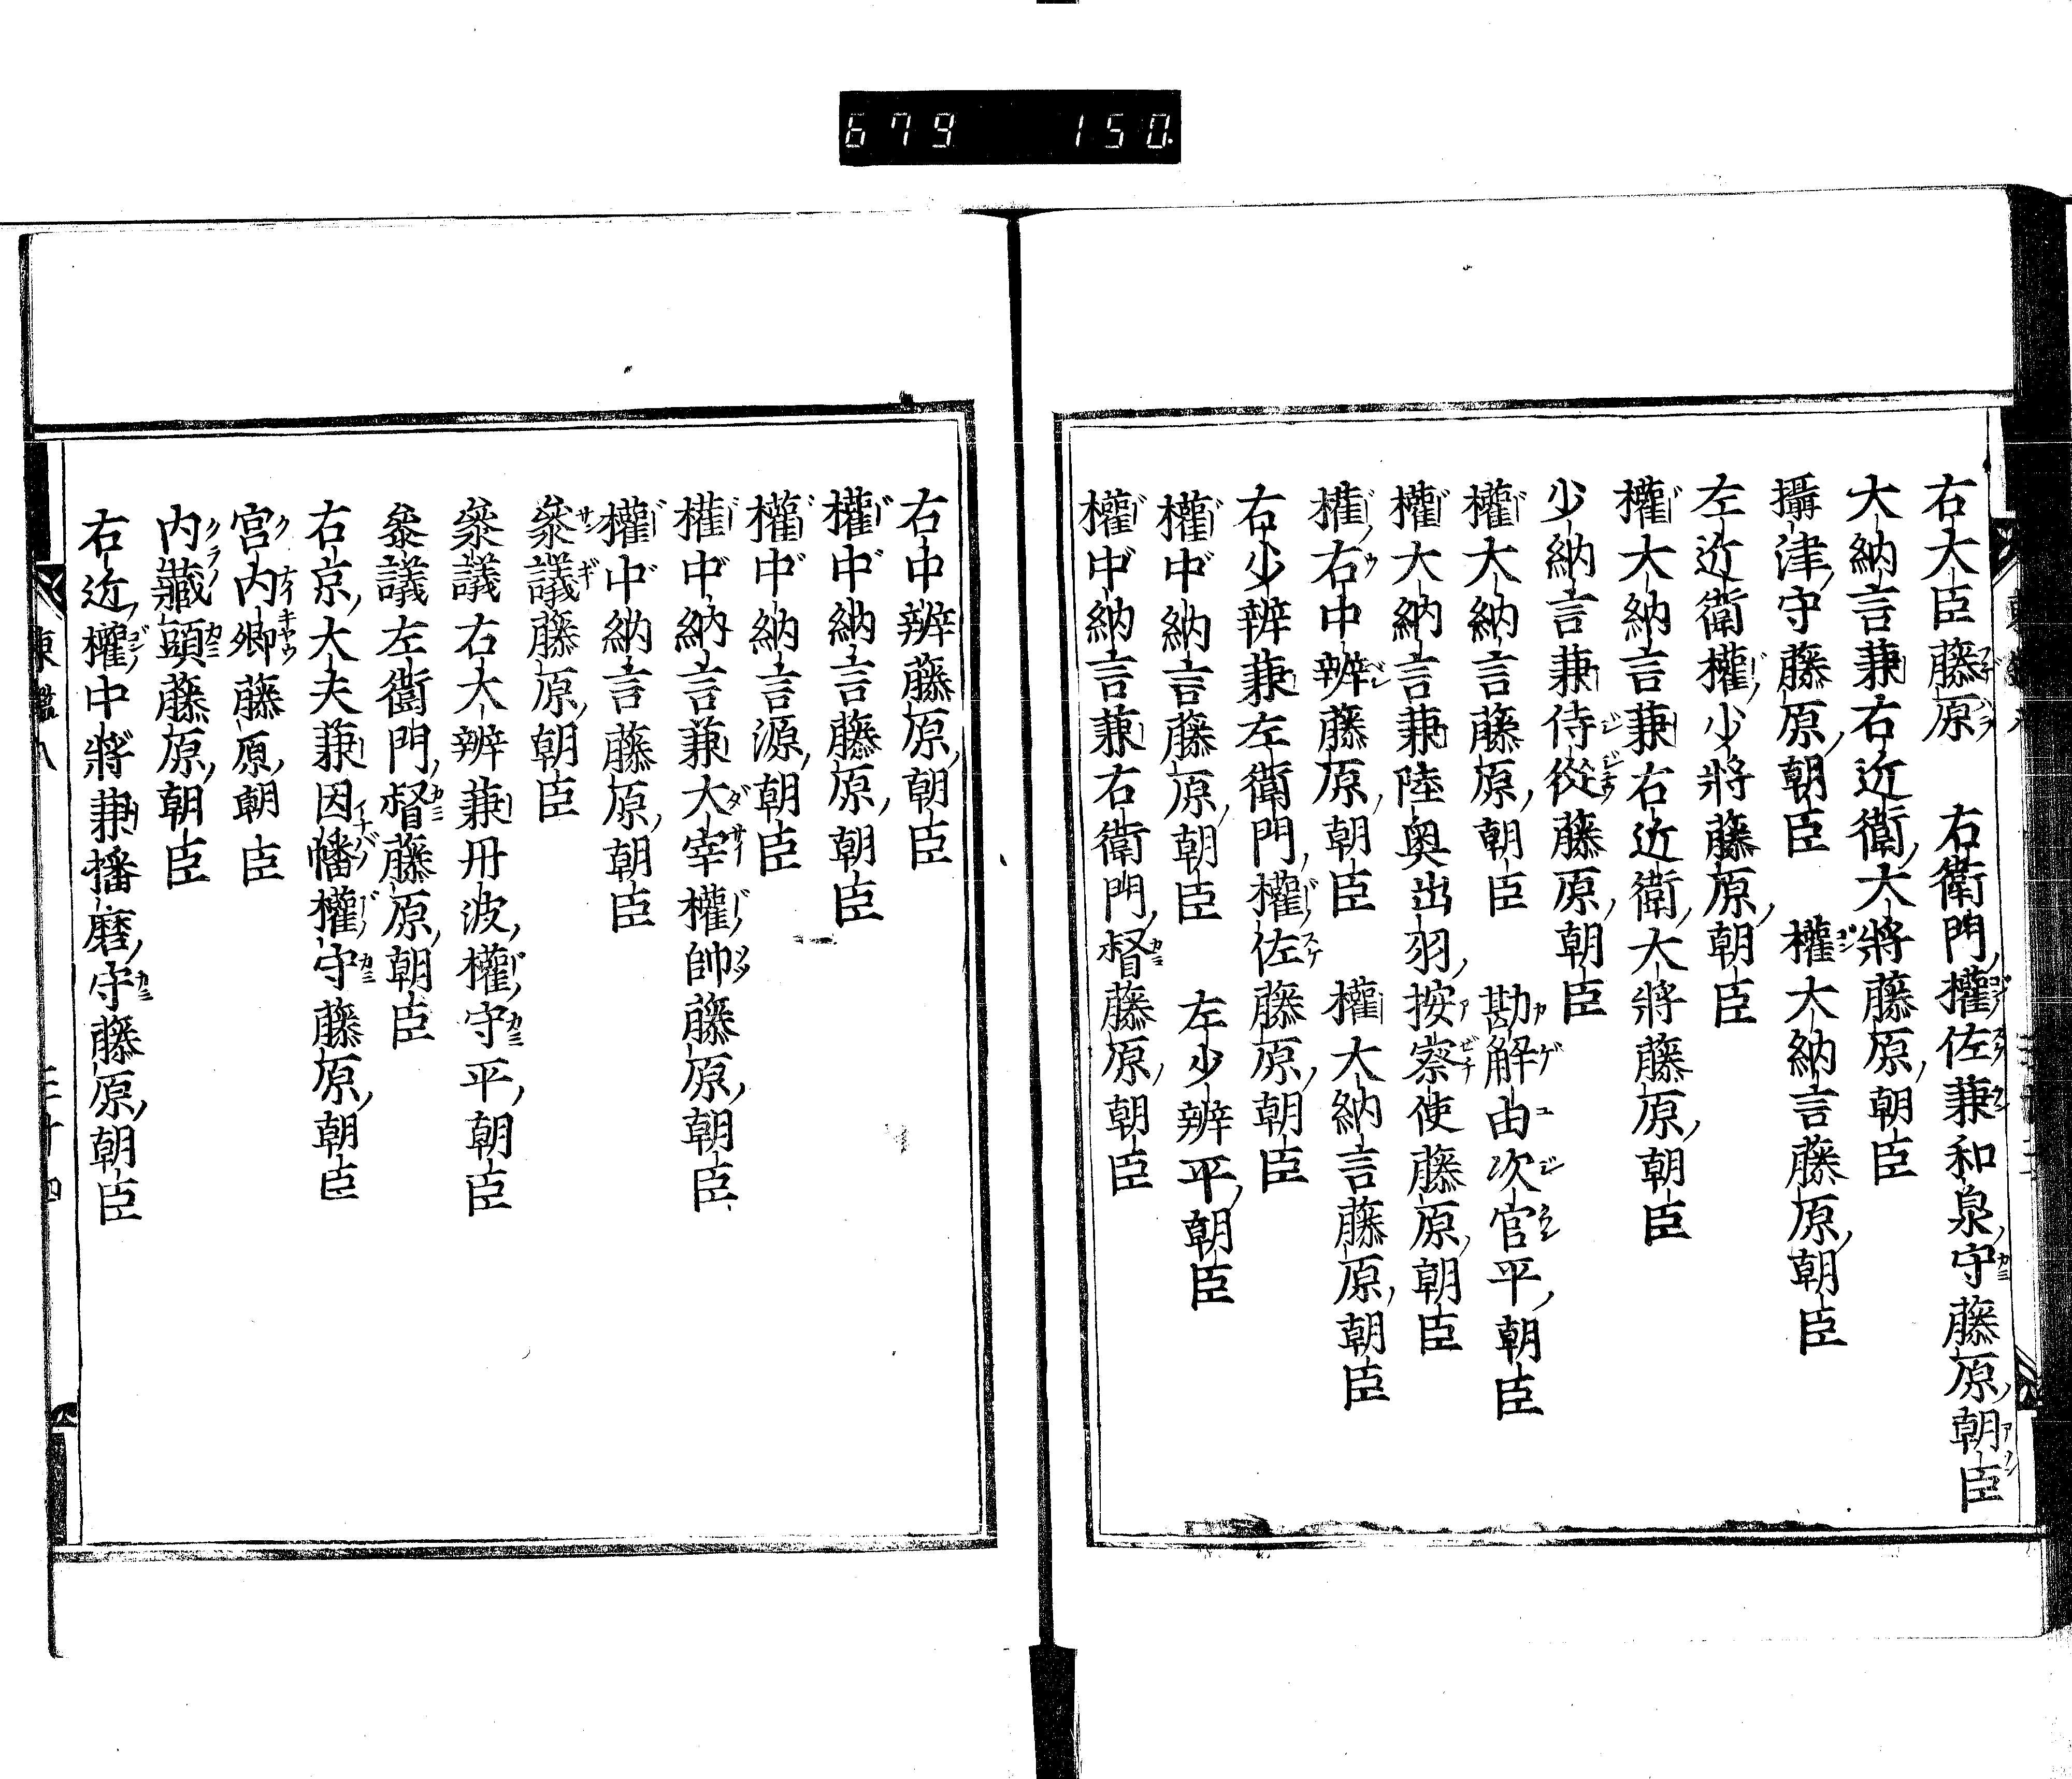 679 150
右大臣藤原 右衛門權佐兼和泉守藤原朝臣
大納言兼右近衛大將藤原朝臣
攝津守藤原朝臣 權大納言藤原朝臣
左近衛權少將藤原朝臣
權大納言兼右近衛大將藤原朝臣
少納言兼侍從藤原朝臣
權大納言藤原朝臣 勘解由次官平朝臣
權大納言兼陸奥出羽按察使藤原朝臣
權右中辨藤原朝臣 權大納言藤原朝臣
右少辨兼左衛門權佐藤原朝臣
權中納言藤原朝臣 左少辨平朝臣
權中納言兼右衛門督藤原朝臣
右中辨藤原朝臣
權中納言藤原朝臣
權中納言源朝臣
權中納言兼大宰權帥藤原朝臣
權中納言藤原朝臣
參議藤原朝臣
參議右大辨兼丹波權守平朝臣
參議左衛門督藤原朝臣
右京大夫兼因幡權守藤原朝臣
宮内卿藤原朝臣
内藏頭藤原朝臣
右近權中將兼播磨守藤原朝臣
東鑑八 三十四